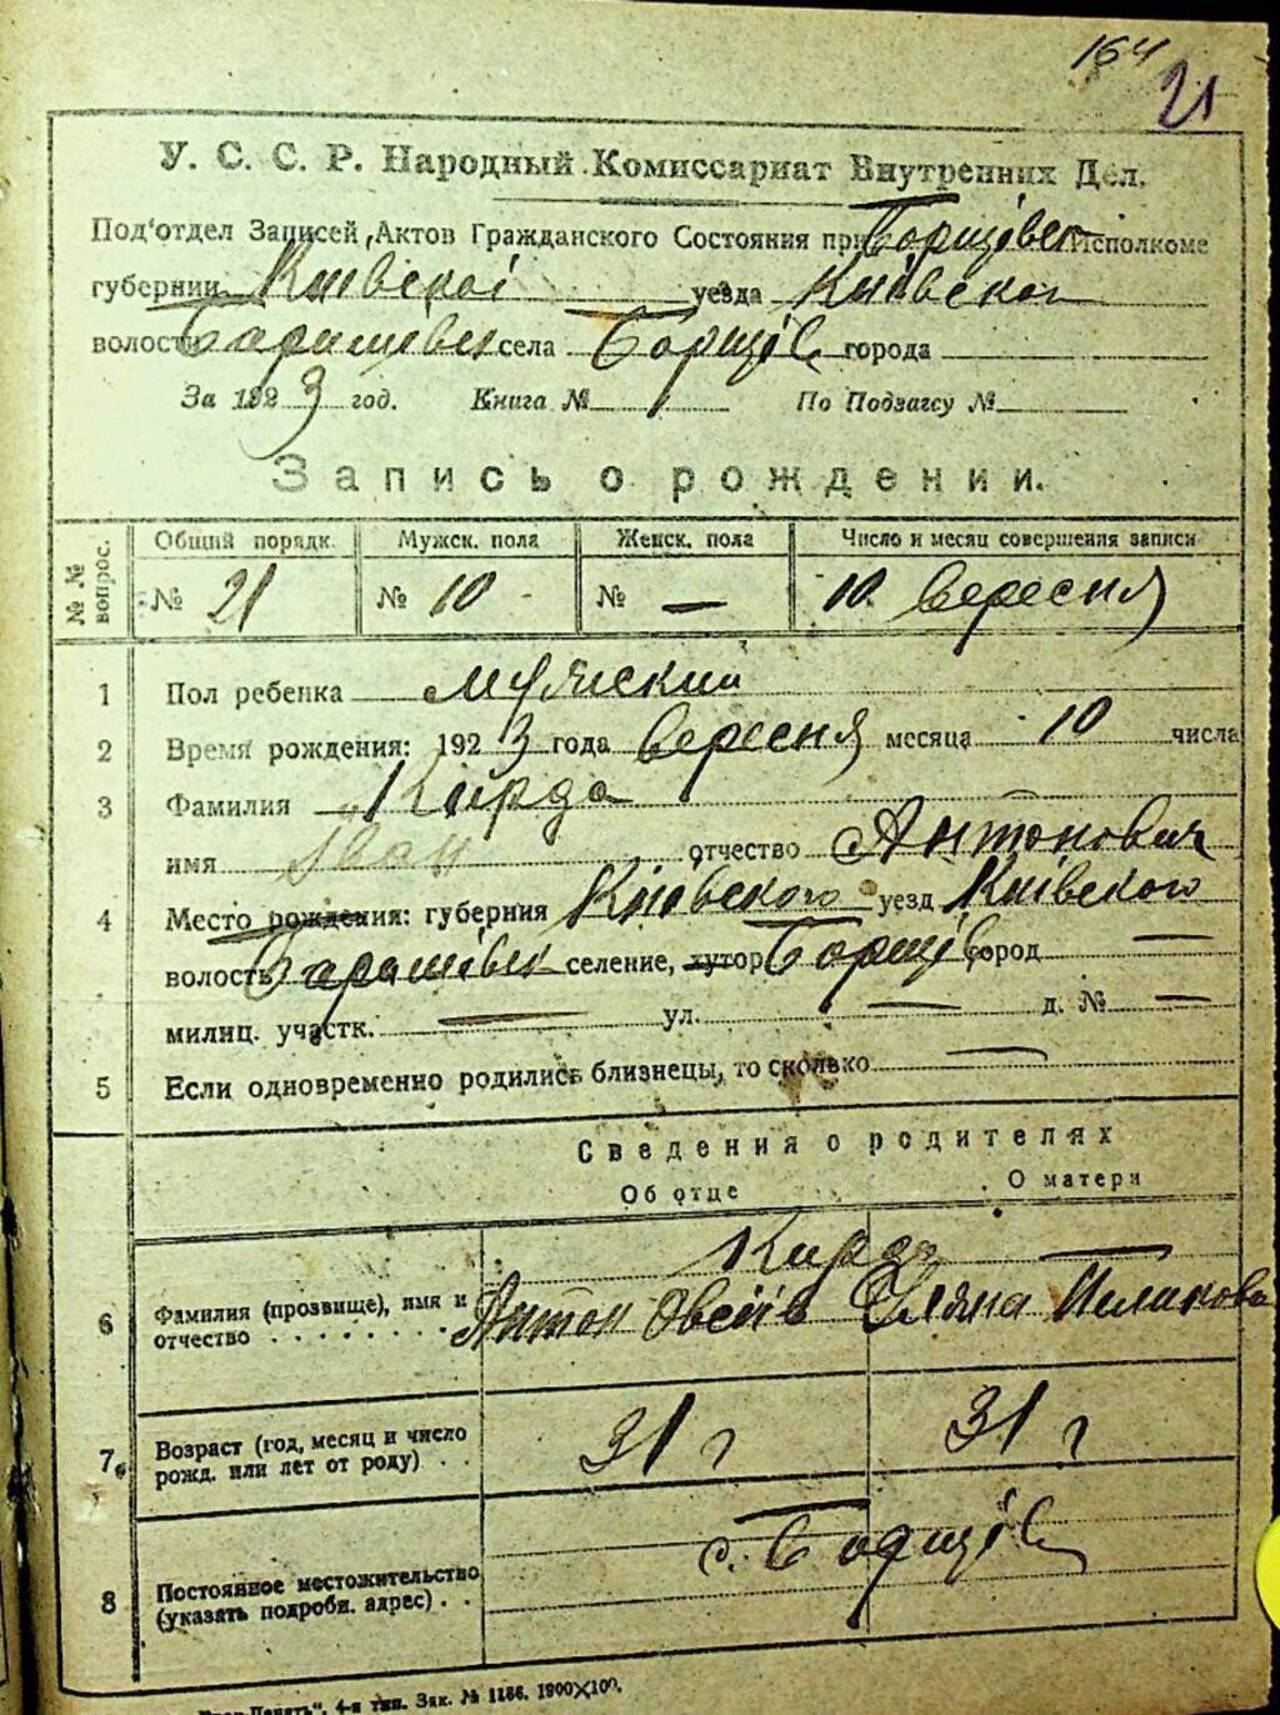 164
21
У. С. С. Р. Народный Комиссариат Внутренних Дел.
Под'отдел Записей Актов Гражданского Состояния при Борщівск Исполкоме
губернии Київської уезда Київського
волости Баришівск села Борщів города
За 1923 год. Книга № По Подзагсу №
Запись о рождении.
№ № вопрос. Общий порядк. Мужск. пола Женск. пола Число и месяц совершения записи
№ 21 № 10 № — 10 вересня
1 Пол ребенка мужский
2 Время рождения: 1923 года вересня месяца 10 числа
3 Фамилия Кирда
имя Іван отчество Антонович
4 Место рождения: губерния Київського уезд Київського
волость Баришівск селение, хутор Борщів город —
милиц. участк. — ул. — д. № —
5 Если одновременно родились близнецы, то сколько —
Сведения о родителях
Об отце О матери
Кирда —
6 Фамилия (прозвище), имя и отчество Антон Овсіїв Уляна
7 Возраст (год, месяц и число рожд. или лет от роду) 31 г 31 г
8 Постоянное местожительство (указать подробн. адрес) с. Борщів
4-я тип. Зак. № 1186. 1900×100.